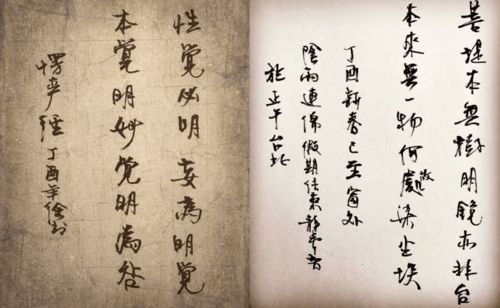 菩提本無樹明鏡亦非台
本來無一物何處染塵埃
丁酉新春已至窗外
陰雨連綿假期結束靜
於正午台北
性覺必明妄為明覺
本覺明妙覺明為咎
楞严經丁酉年